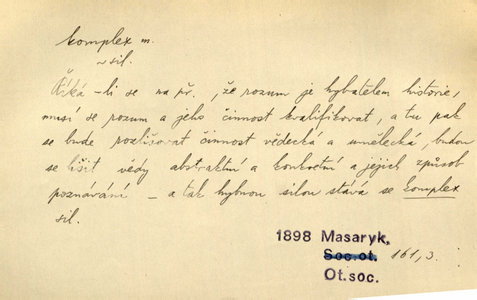 komplex m.
~ sil.
Říká-li se na př., že rozum je hybatelem historie,
musí se rozum a jeho činnost kvalifikovat, a tu pak
se bude rozlišovat činnost vědecká a umělecká, budou
se lišit vědy abstraktní a konkretní a jejich způsob
poznávání – a tak hybnou silou stává se komplex
sil.
1898 Masaryk,
Soc. ot. 161,3.
Ot. soc.